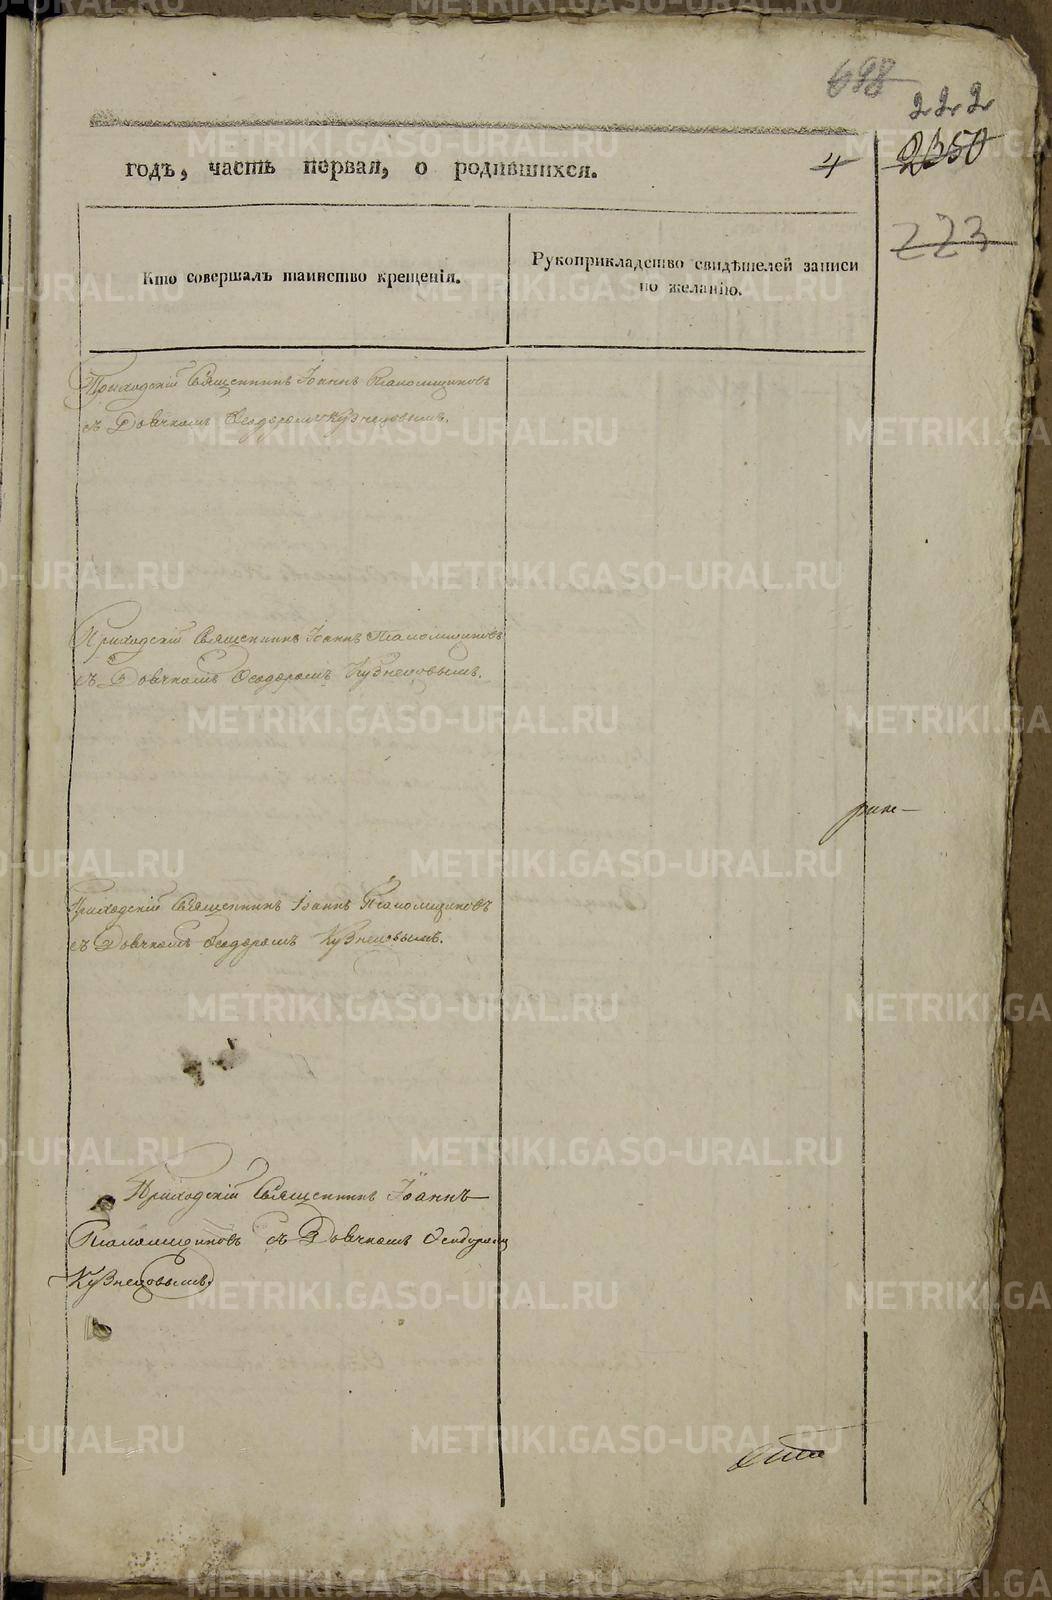 698
222
годъ, часть первая, о родившихся.
4
2350
223
Кто совершалъ таинство крещенія.
Рукоприкладство свидѣтелей записи
по желанію.
Приходскій Священникъ Іоаннъ Псаломщиковъ
съ Дьячкомъ Ѳеодоромъ Кузнецовымъ.
Приходскій Священникъ Іоаннъ Псаломщиковъ
съ Дьячкомъ Ѳеодоромъ Кузнецовымъ.
Приходскій Священникъ Іоаннъ Псаломщиковъ
съ Дьячкомъ Ѳеодоромъ Кузнецовымъ.
Приходскій Священникъ Іоаннъ
Псаломщиковъ съ Дьячкомъ Ѳеодоромъ
Кузнецовымъ.
METRIKI.GASO-URAL.RU